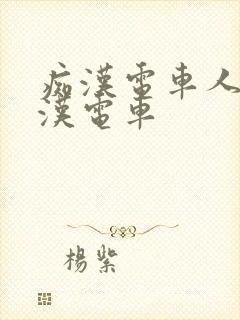 痴漢電車人
漢電車
楊紫